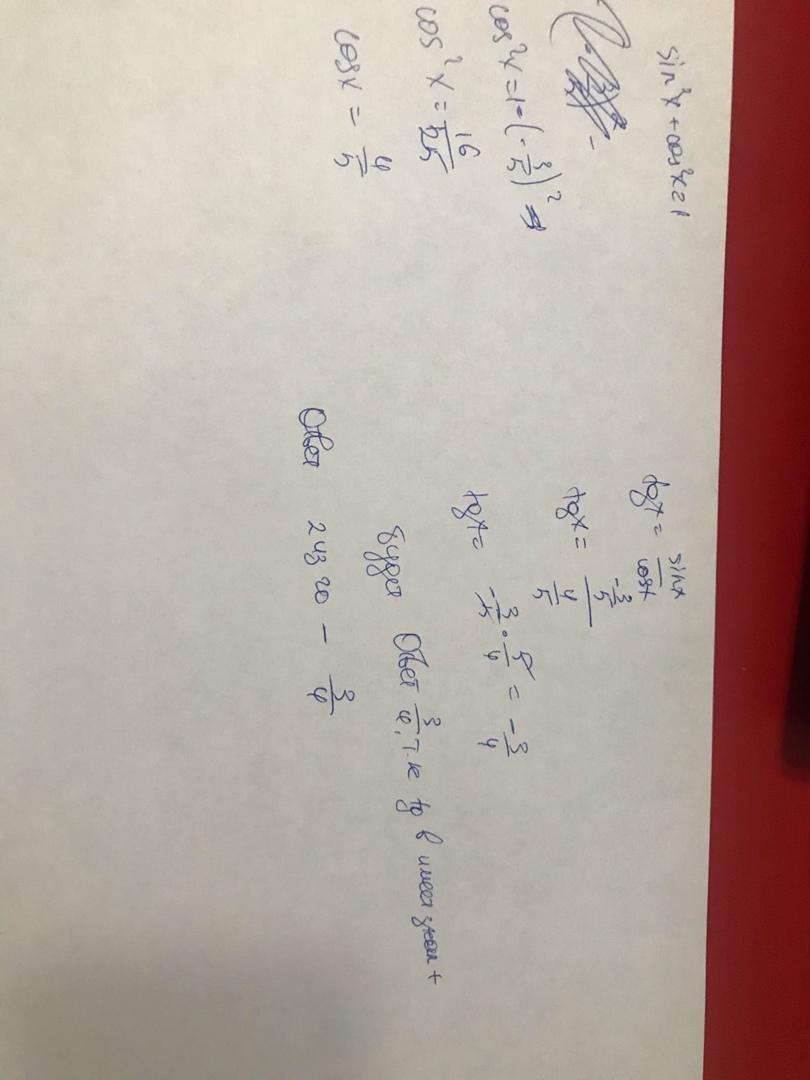 sin²x + cos²x = 1
cos²x = 1 - (-3/5)²
cos²x = 16/25
cosx = 4/5
tgx = sinx/cosx
tgx = (-3/5)/(4/5)
tgx = -3/5 · 5/4 = -3/4
будет Ответ 3/4, т.к tg в имеет +
Ответ - 3/4